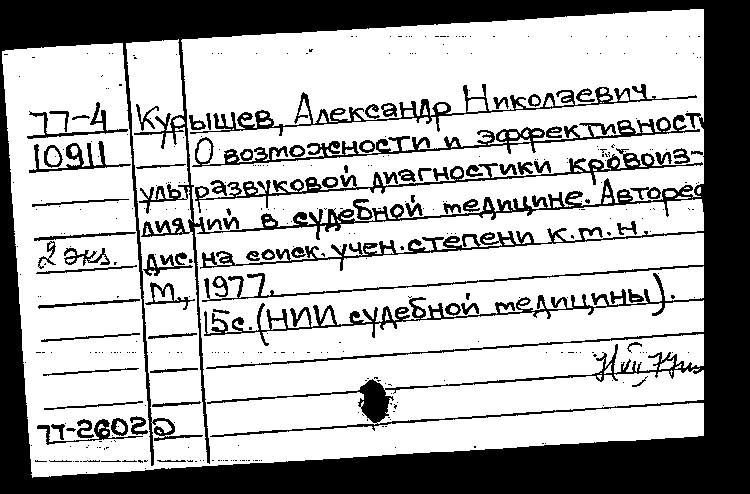 77-4 Курышев, Александр Николаевич.
10911 О возможности и эффективност
ультразвуковой диагностики кровоиз-
лияний в судебной медицине. Автореф
2 экз. дис. на соиск. учен. степени к.м.н.
М., 1977.
15с. (НИИ судебной медицины).
77-26022